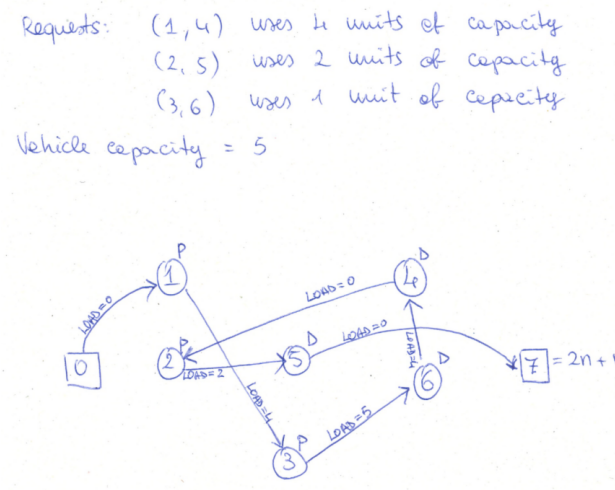 Requests: (1,4) uses 4 units of capacity
(2,5) uses 2 units of capacity
(3,6) uses 1 unit of capacity
Vehicle capacity = 5
P
1
D
4
LOAD=0
LOAD=0
P
2
LOAD=2
D
5
LOAD=0
0
LOAD=4
D
6
LOAD=4
7 = 2n+
P
3
LOAD=5